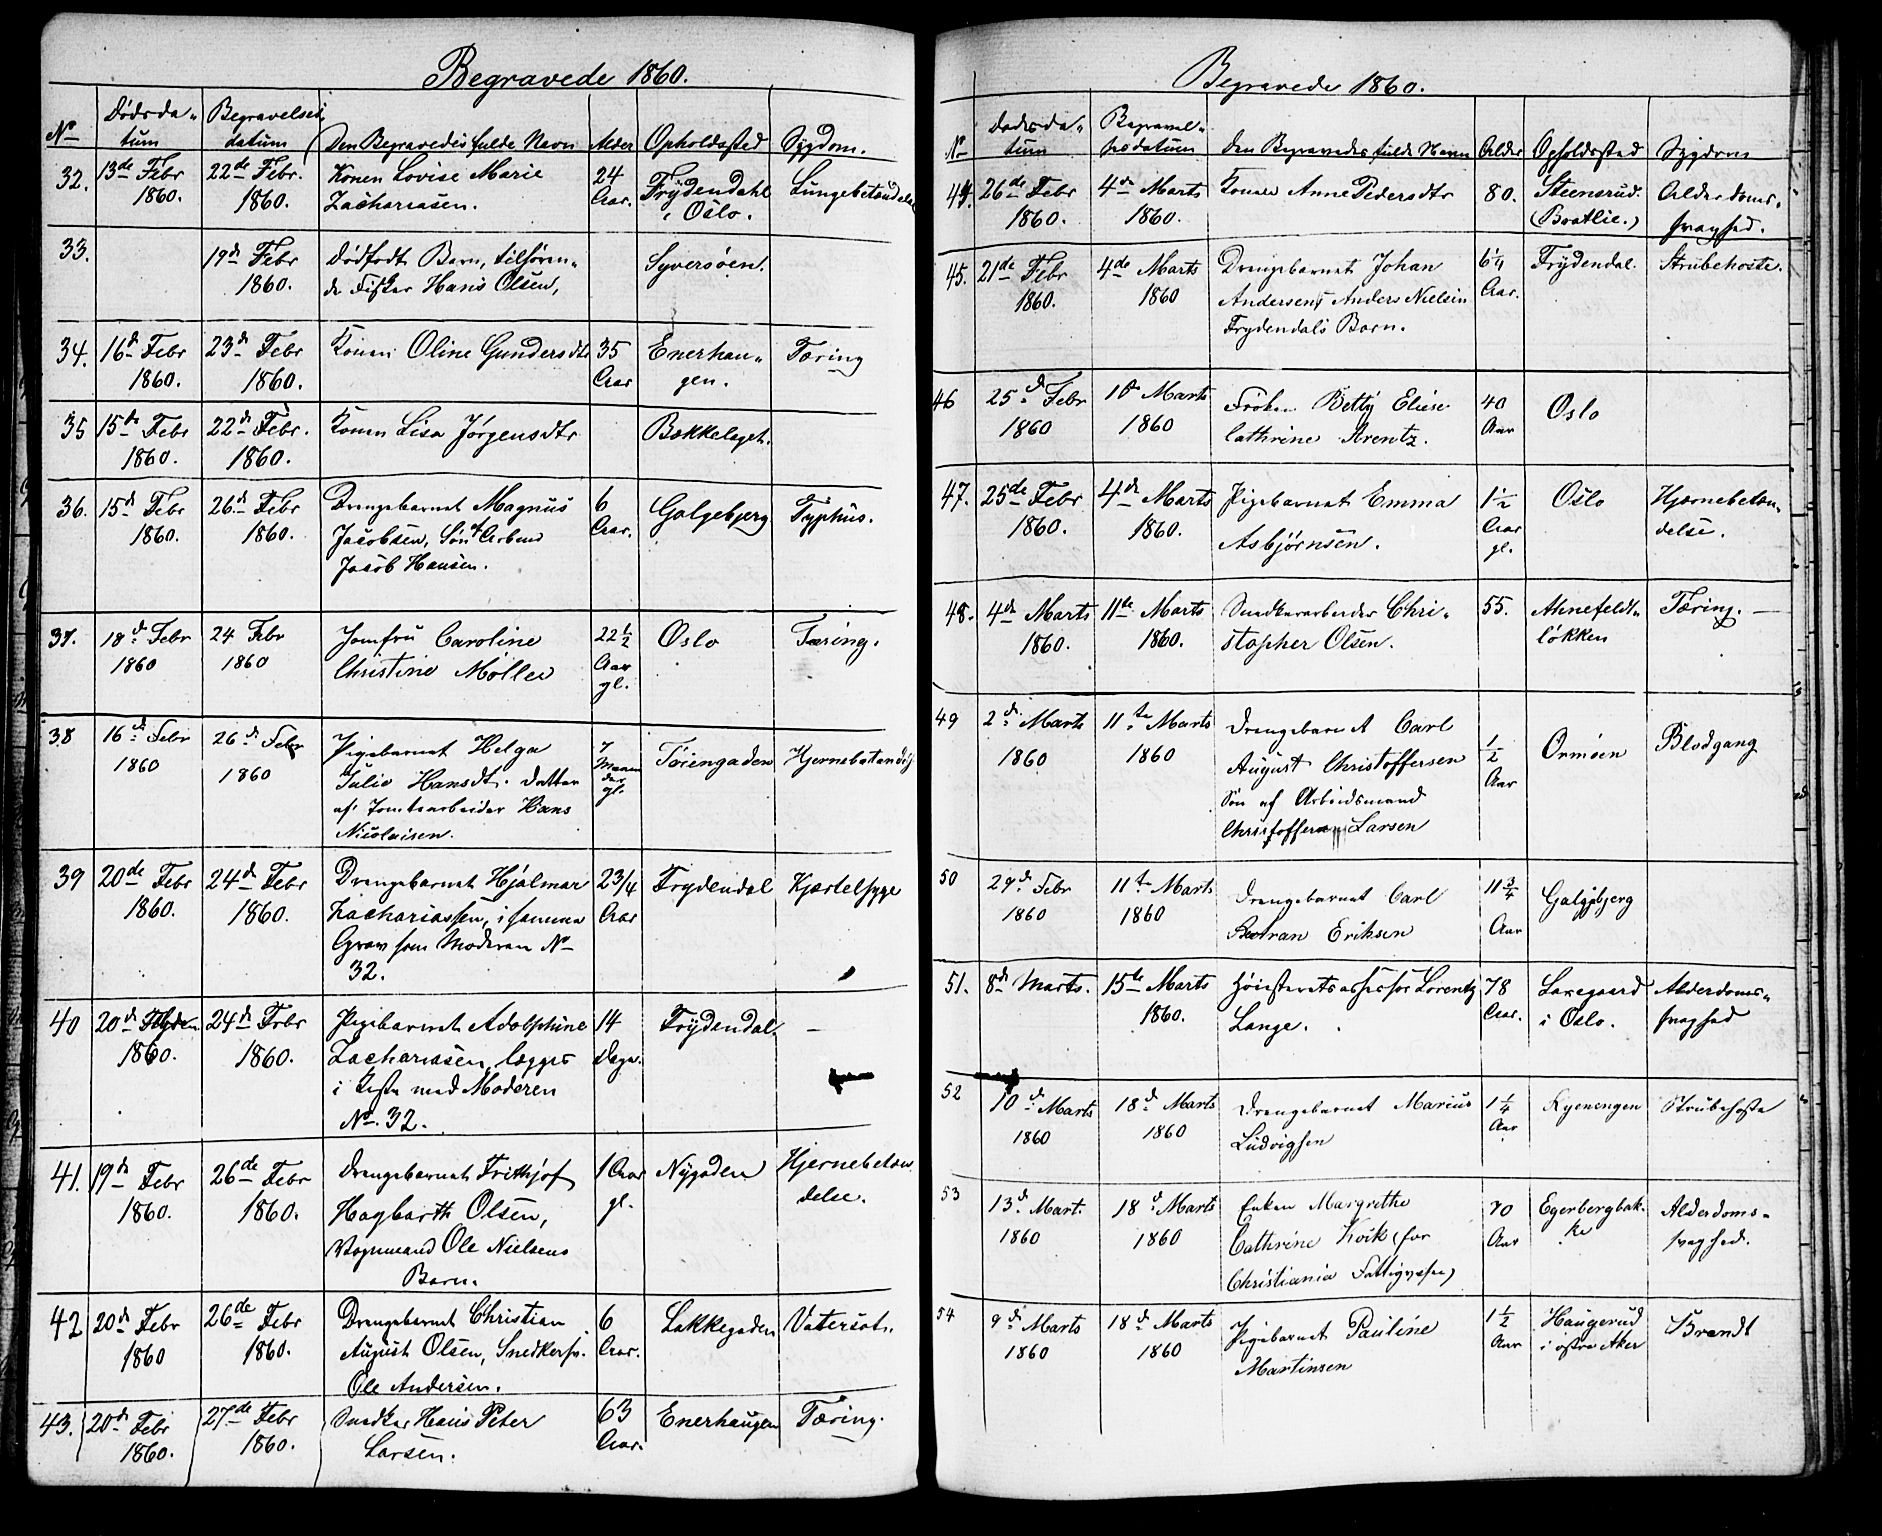 Begravede 1860.
No Dødsda„tum Begravelsesdatum Den Begravedes fulde Navn Alder Opholdssted Sygdom.
32. 13de Febr 1860. 22de Febr. 1860. Konen Lovise Marie Zachariasen. 24 Aar. Frydendahl i Oslo. Lungebetændelse
33. 19de Febr 1860. Dødfødt Barn, tilhørende Fisker Hans Olsen, Syversøen.
34. 16de Febr 1860. 23de Febr 1860. Konen Oline Gundersdtr 35 Aar Enerhau„gen. Tæring
35 15de Febr 1860. 22de Febr. 1860. Konen Lisa Jørgensdtr Bækkelaget.
36. 15de Febr 1860. 26de Febr 1860. Drengebarnet Magnus Jacobsen, Søn af Arbmd Jacob Hansen. 6 Aar. Galgebjerg Typhus.
37. 18de Febr 1860 24 Febr 1860 Jomfru Caroline Christine Møller 22½ Aar gl. Oslo Tæring.
38 16de Febr 1860 26de Febr 1860 Pigebarnet Helga Julie Hansdt. Datter af Tomtearbeider Hans Nicolaisen. 7 Maaneder gl. Tøiengaden Hjernebetændels
39 20de Febr 1860. 24de Febr 1860. Drengebarnet Hjalmar Zachariassen, i samme Grav som Moderen No 32. 2 3/4 Aar Frydendal Kjertelsyge
40 20de Febr 1860. 24de Febr 1860. Pigebarnet Adolphine Zachariasen, lægges i Kiste med Moderen No. 32. 14 Dage. Frydendal. —
41. 19de Febr 1860. 26de Febr 1860. Drengebarnet Frithjof Hagbarth Olsen, Vognmand Ole Nielsens Barn. 1 Aar gl. Nygaden Hjernebetæn„delse.
42 20de Febr 1860 26de Febr 1860. Drengebarnet Christian August Olsen, Snedkersv. Ole Andersen. 6 Aar. Lakkegaden Vatersot.
43. 20de Febr 1860. 27de Febr 1860. Snedker Hans Peter Larsen. 63 Aar. Enerhaugen Tæring.
Begravede 1860.
No Dødsda„tum Begravel„sesdatum Den Begravedes fulde Navn Alder Opholdssted Sygdom
44. 26de Febr 1860. 4de Marts 1860. Konen Anne Pedersdtr 80. Steensrud. (Bratlie.) Alderdoms„svaghed.
45. 21de Febr 1860. 4de Marts 1860 Drengebarnet Johan Andersen, Anders Nielsen Frydendals Barn. 6¼ Aar. Frydendal. Strubehoste.
46 25de Febr 1860 1de Marts 1860 Frøken Betty Elise Cathrine Arentz. 40 Aar Oslo
47. 25de Febr 1860. 4de Marts 1860. Pigebarnet Emma Asbjørnsen. 1½ Aar gl. Oslo Hjernebetæn„delse.
48. 4de Marts 1860. 11te Marts 1860. Snedkerarbeider Chri„stopher Olsen. 55. Ahnefeldt„løkken Tæring. —
49 2de Marts 1860 11te Marts 1860 Drengebarnet Carl August Christoffersen Søn af Arbeidsmand Christoffer Larsen ½ Aar Ormøen Blodgang
50 29de Febr 1860 11te Marts 1860 Drengebarnet Carl Bertran Eriksen 11 3/4 Aar Galgebjerg
51. 8de Marts. 15de Marts 1860. Høiesteretsassessor Lorentz Lange. 78 Aar. Laxegaard i Oslo. Alderdoms„svaghed
52 10de Marts 1860 18de Marts 1860 Drengebarnet Marius Ludvigsen 1¼ Aar Ryenengen Strubehoste
53 13de Mart. 1860 18de Marts 1860 Enken Margrethe Cathrine Kvik (for Christiania Fattigvæsen) 70 Aar Egerbergbak„ke Alderdoms„svaghed.
54 9de Marts 1860 18de Marts 1860 Pigebarnet Pauline Martinsen 1½ Aar Haugerud i østre Aker Brandt